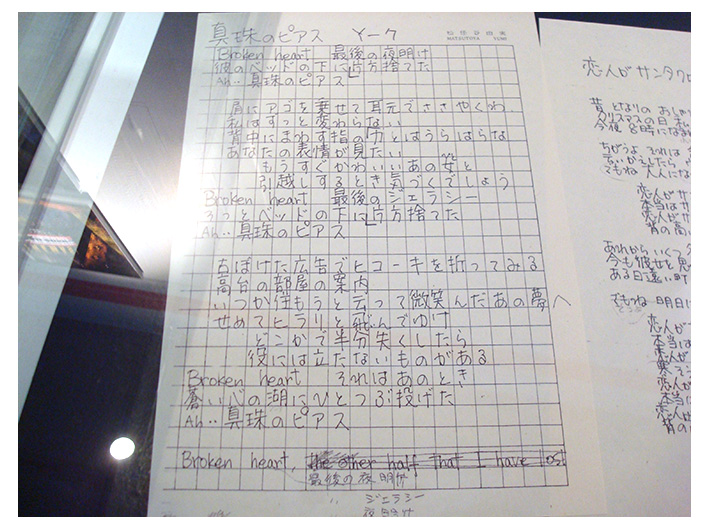 真珠のピアス Y-ク
松任谷由実
MATSUTOYA YUMI
Broken heart 最後の夜明け
彼のベッドの下に片方捨てた
Ah‥真珠のピアス
肩にアゴを乗せて耳元でささやくわ
私はずっと変わらない
背中にまわす指の力とはうらはらな
あなたの表情が見たい
もうすぐかわいいあの女と
引越しするとき気づくでしょう
Broken heart 最後のジェラシー
そっとベッドの下に片方捨てた
Ah‥真珠のピアス
古ぼけた広告でヒコーキを折ってみる
高台の部屋の案内
いつか住もうと云って微笑んだあの夢へ
せめてヒラリと飛んでゆけ
どこかで半分失くしたら
役には立たないものがある
Broken heart それはあのとき
蒼い心の湖にひとつぶ投げた
Ah‥真珠のピアス
Broken heart, the other half that I have lost
最後の夜明け
ジェラシー
夜明け
恋人がサンタクロ
昔 となりのおしゃ
クリスマスの日 私
今夜 8時になれ
ちがうよ それは
でもね 大人にな
恋人がサ
本当はサ
恋人がサ
背の高い
あれから いくつ
今も彼女を思
ある日遠い町
でもね 明日
恋人が
本当は
恋人が
寒そ
恋人が
本当に
恋人が
背の